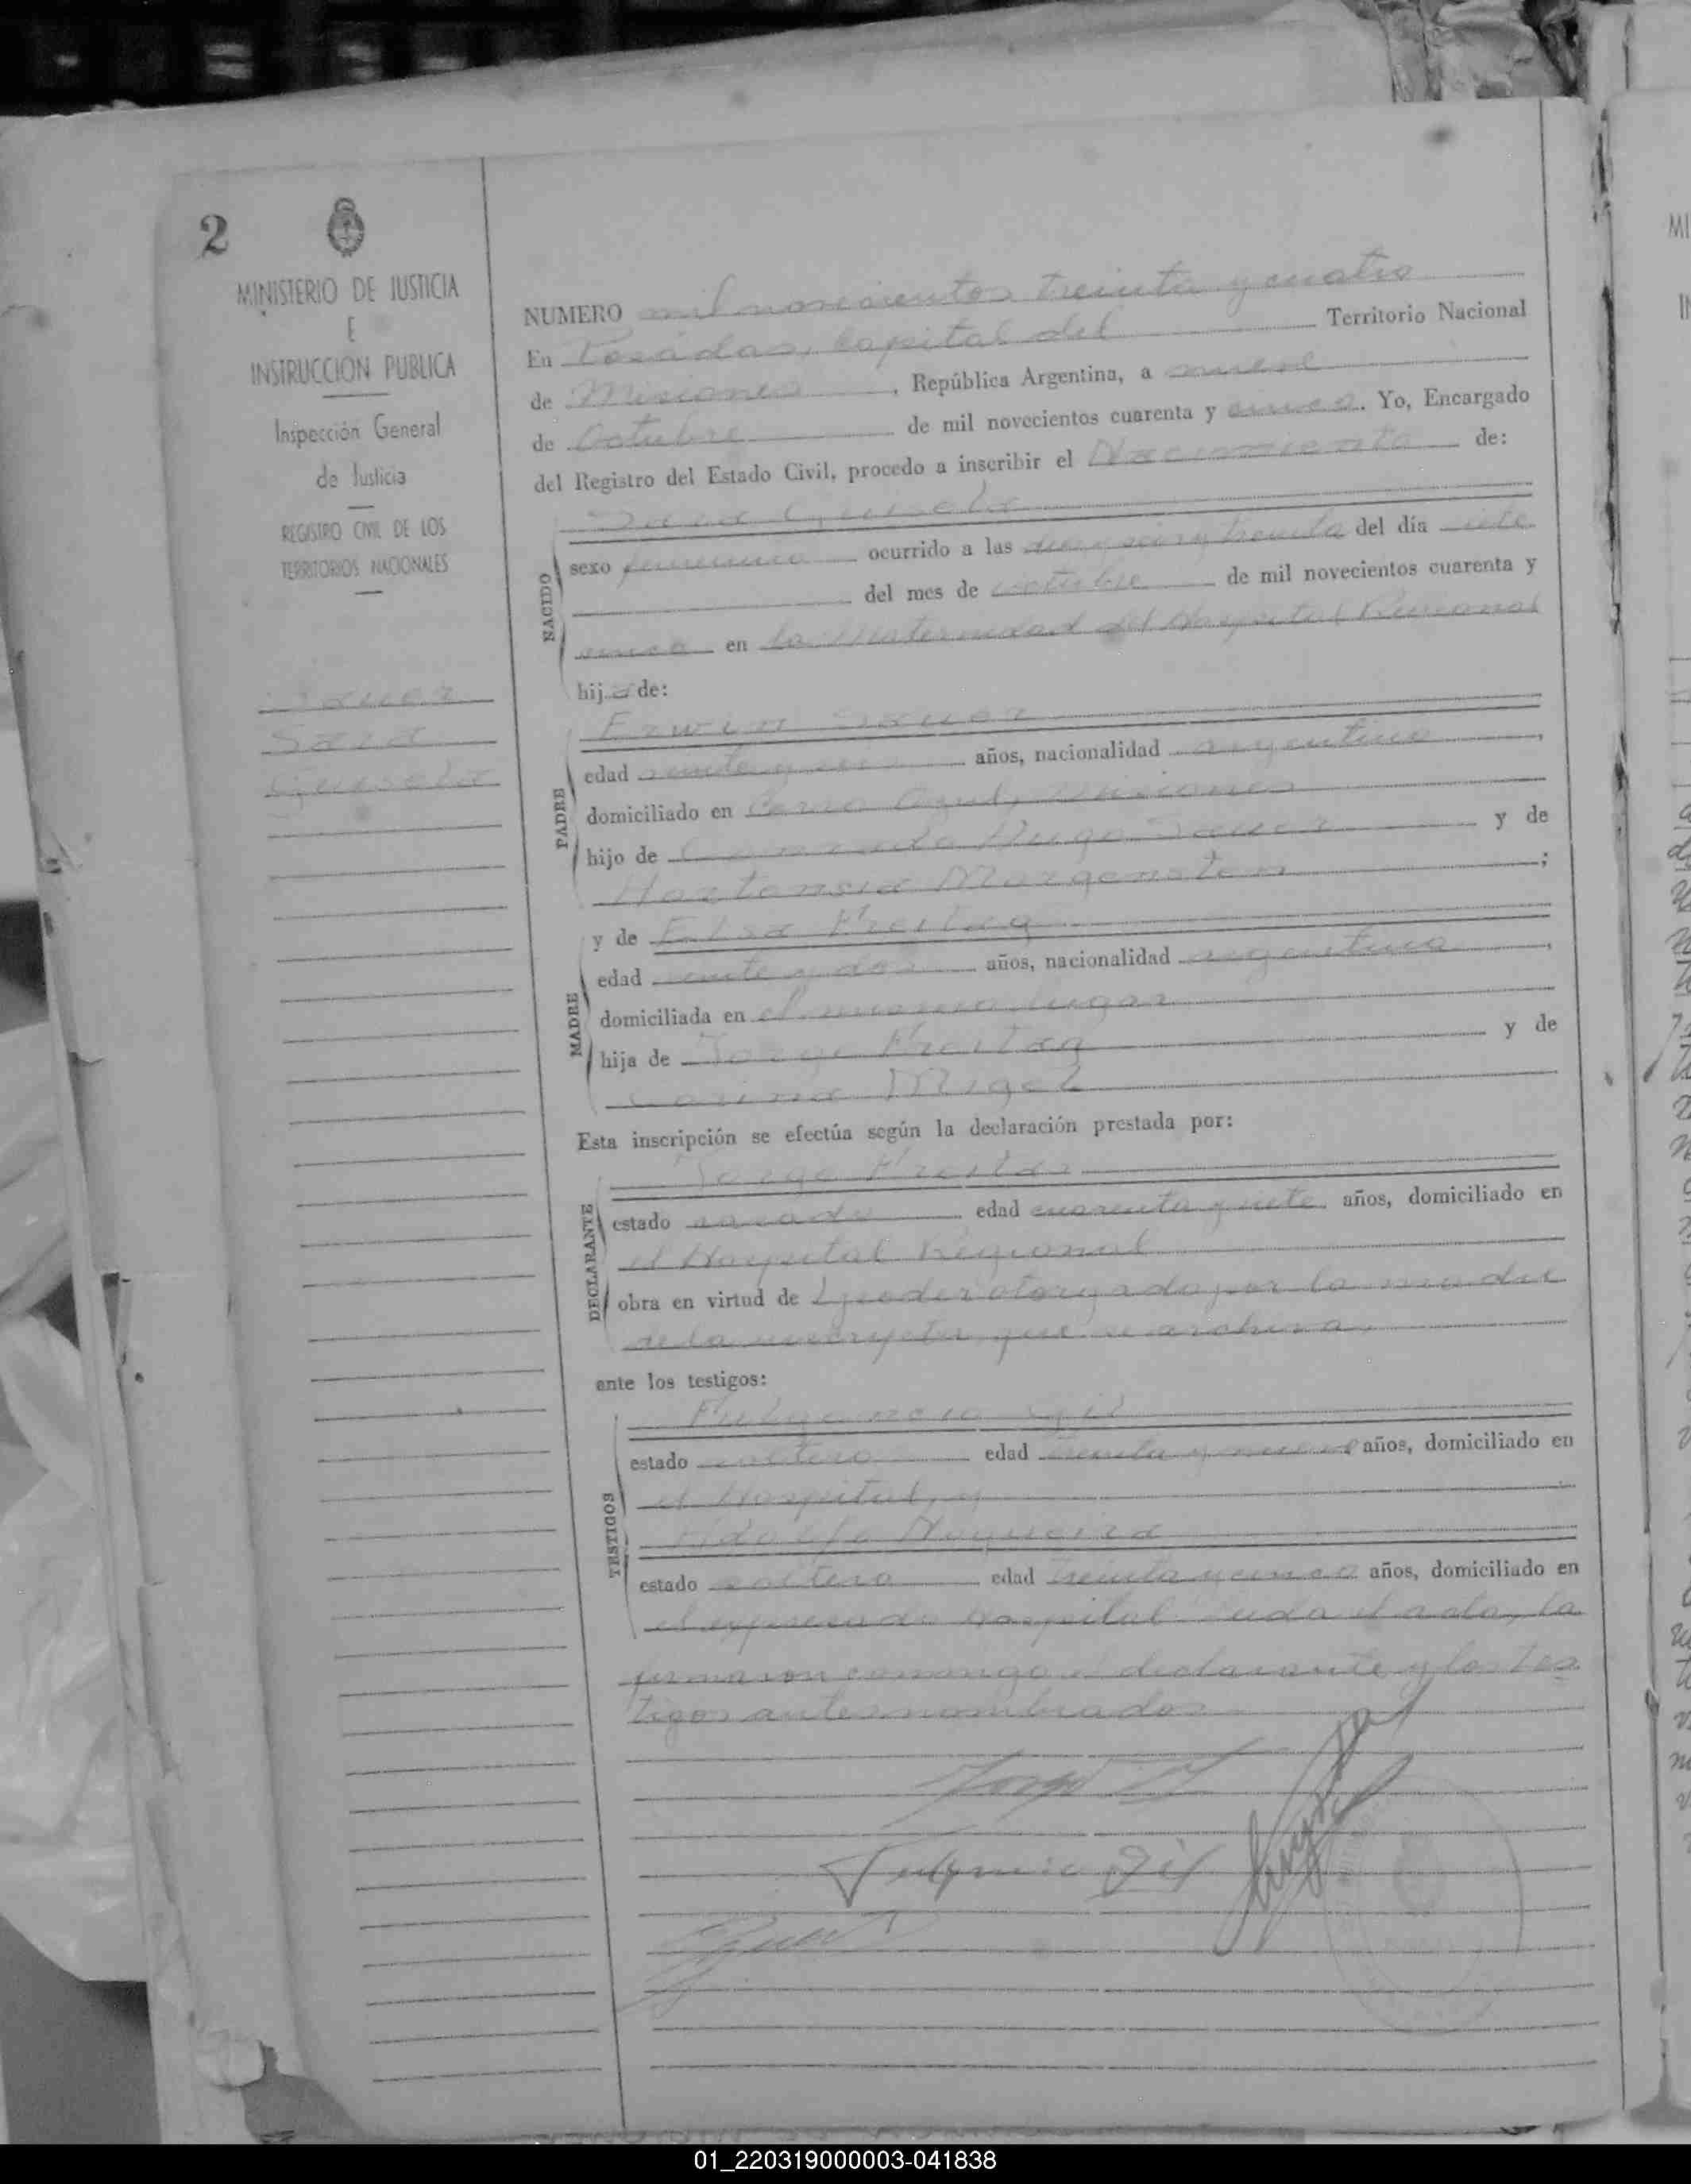 2
MINISTERIO DE JUSTICIA
E
INSTRUCCION PUBLICA
Inspección General
de Justicia
REGISTRO CIVIL DE LOS
TERRITORIOS NACIONALES
Sauer
Sara
Guisela
NUMERO mil novecientos treinta y cuatro
En Posadas, capital del Territorio Nacional
de Misiones, República Argentina, a nueve
de Octubre de mil novecientos cuarenta y cinco. Yo, Encargado
del Registro del Estado Civil, procedo a inscribir el Nacimiento de:
Sara Guisela
NACIDO
sexo femenino ocurrido a las diez y seis y treinta del día siete
del mes de octubre de mil novecientos cuarenta y
cinco en la Maternidad del Hospital Regional
hija de:
PADRE
Erwin Sauer
edad y seis años, nacionalidad argentino,
domiciliado en Cerro Azul, Misiones
hijo de Conrado Hugo Sauer y de
Hortensia Morgenstern;
MADRE
y de Elsa Freitag
edad veinte y dos años, nacionalidad argentina,
domiciliada en el mismo lugar
hija de Jorge Freitag y de
Migel
Esta inscripción se efectúa según la declaración prestada por:
DECLARANTE
Jorge Freitag
estado casado edad cuarenta y siete años, domiciliado en
el Hospital Regional
obra en virtud de poder otorgado por la madre
de la inscripta que se archiva,
ante los testigos:
TESTIGOS
Fulgencio Gil
estado soltero edad treinta y nueve años, domiciliado en
el Hospital, y
Adolfo Nogueira
estado soltero edad treinta y cinco años, domiciliado en
el expresado hospital. Leída el acta, la
firmaron conmigo el declarante y los tes
tigos antes nombrados.
Fulgencio Gil
01_220319000003-041838